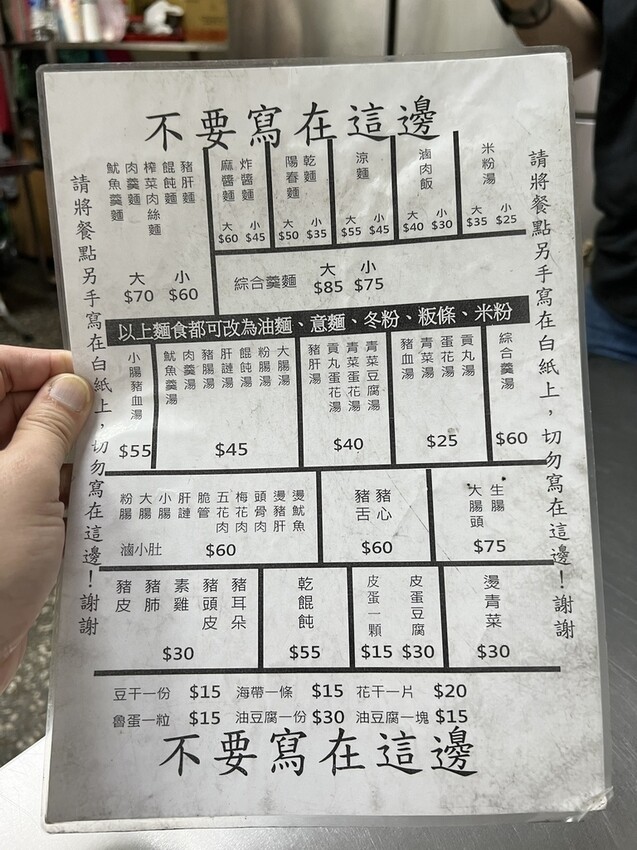 不要寫在這邊
請將餐點另手寫在白紙上，切勿寫在這邊！謝謝
米粉湯
大 小
$35 $25
滷肉飯
大 小
$40 $30
涼麵
大 小
$55 $45
乾麵
陽春麵
大 小
$50 $35
炸醬麵
麻醬麵
大 小
$60 $45
豬肝麵
餛飩麵
榨菜肉絲麵
肉羹麵
魷魚羹麵
大 小
$70 $60
綜合羹麵
大 小
$85 $75
以上麵食都可改為油麵、意麵、冬粉、粄條、米粉
綜合羹湯
$60
貢丸湯
蛋花湯
青菜湯
豬血湯
$25
青菜豆腐湯
青菜蛋花湯
貢丸蛋花湯
豬肝湯
$40
大腸湯
粉腸湯
餛飩湯
肝連湯
豬腸湯
肉羹湯
魷魚羹湯
$45
小腸豬血湯
$55
生腸
大腸頭
$75
豬心
豬舌
$60
燙魷魚
燙豬肝
頭骨肉
梅花肉
五花肉
脆管
肝連
小腸
大腸
粉腸
滷小肚
$60
燙青菜
$30
皮蛋豆腐
$30
皮蛋一顆
$15
乾餛飩
$55
豬耳朵
豬頭皮
素雞
豬肺
豬皮
$30
豆干一份 $15 海帶一條 $15 花干一片 $20
魯蛋一粒 $15 油豆腐一份 $30 油豆腐一塊 $15
請將餐點另手寫在白紙上，切勿寫在這邊！謝謝
不要寫在這邊